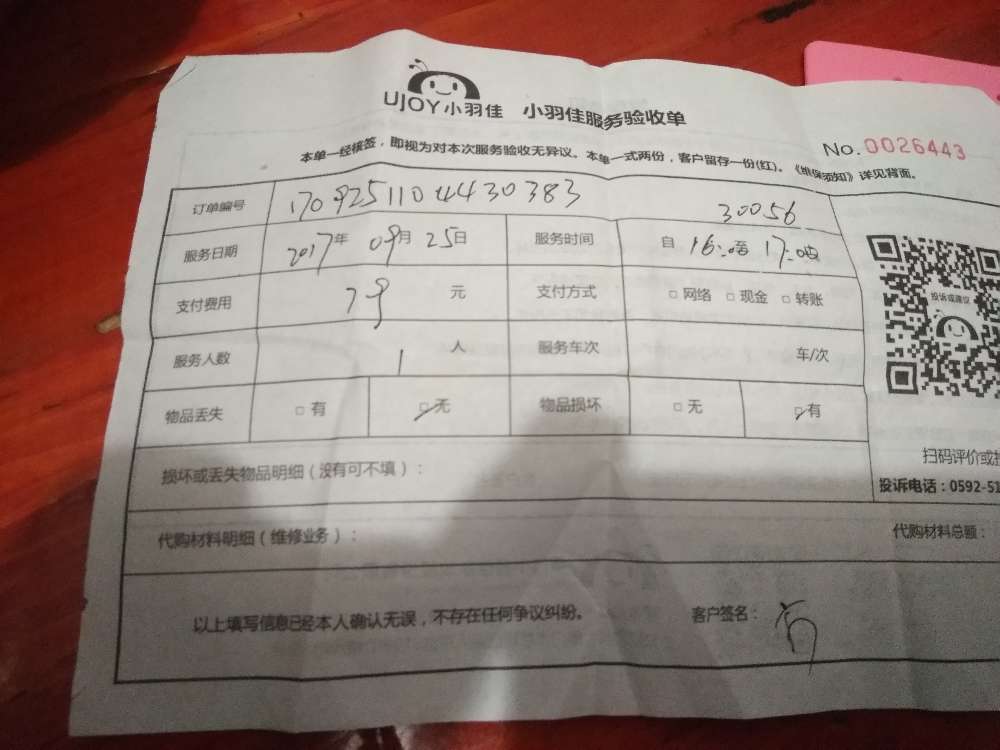 UJOY小羽佳 小羽佳服务验收单
No.0026443
本单一经核签，即视为对本次服务验收无异议。本单一式两份，客户留存一份(红)。《维保须知》详见背面。
订单编号 1709251104430383 30056
服务日期 2017年 09月 25日 服务时间 自 16:00至 17:00
支付费用 79 元 支付方式 □ 网络 □ 现金 □ 转账
投诉或建议
服务人数 1 人 服务车次 车/次
物品丢失 □ 有 ☑ 无 物品损坏 □ 无 ☑ 有
扫码评价或
损坏或丢失物品明细（没有可不填）：
投诉电话：0592-51
代购材料明细（维修业务）： 代购材料总额：
以上填写信息已经本人确认无误，不存在任何争议纠纷。 客户签名：